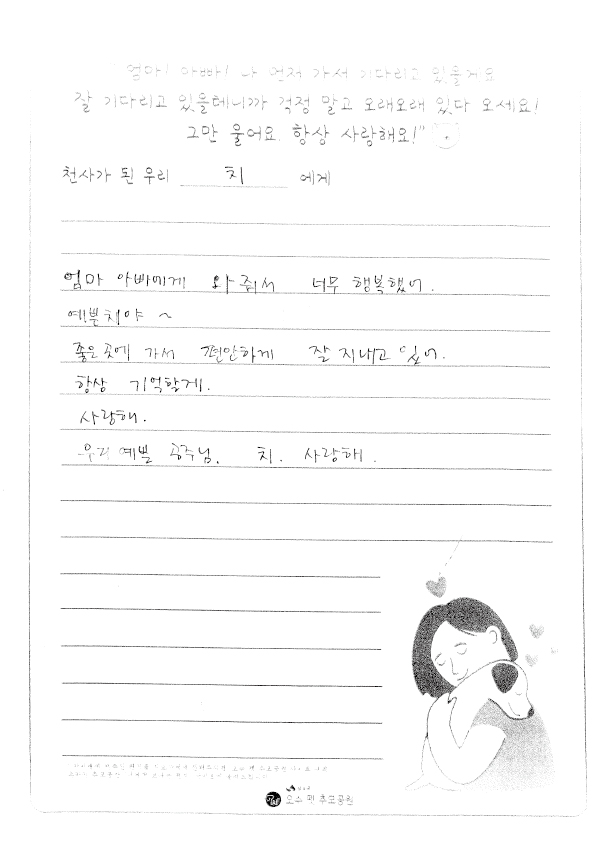 "엄마! 아빠! 나 먼저 가서 기다리고 있을게요
잘 기다리고 있을테니까 걱정 말고 오래오래 있다 오세요!
그만 울어요. 항상 사랑해요!"
천사가 된 우리 치 에게
엄마 아빠에게 와줘서 너무 행복했어.
예쁜치야 ~
좋은곳에 가서 편안하게 잘 지내고 있어.
항상 기억할게.
사랑해.
우리 예쁜 공주님. 치. 사랑해.
오수 펫 추모공원